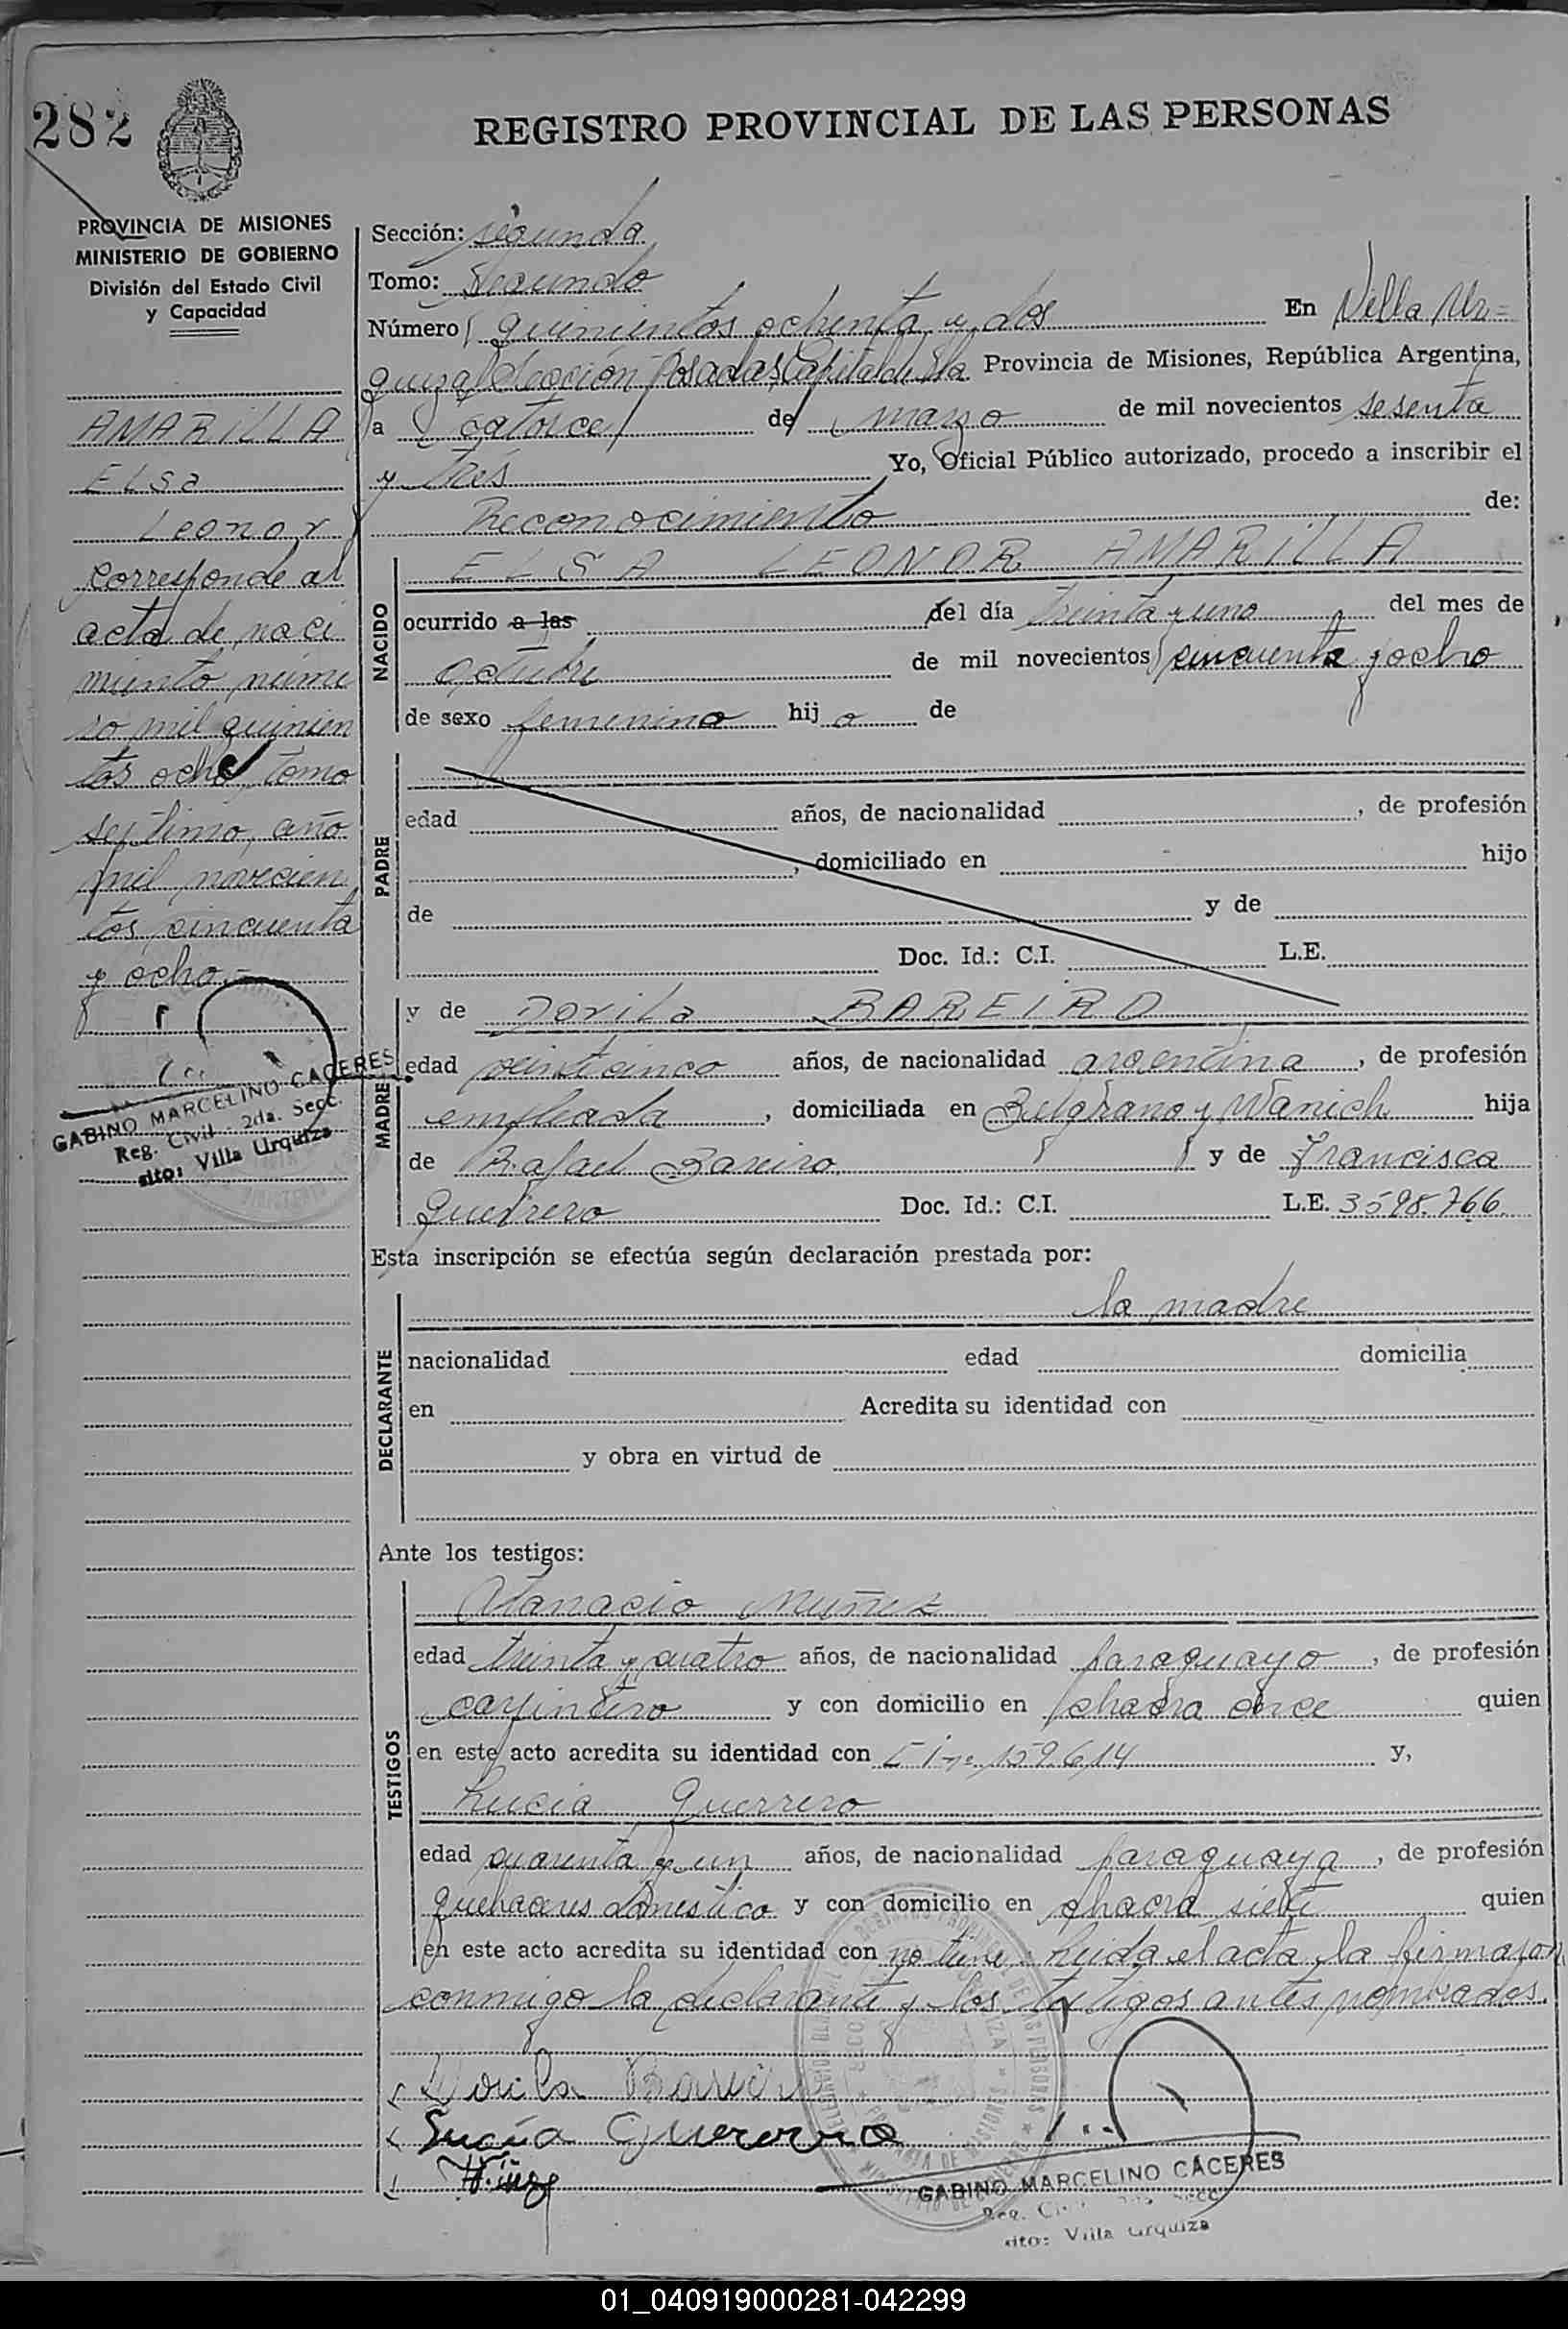 282
REGISTRO PROVINCIAL DE LAS PERSONAS
PROVINCIA DE MISIONES
MINISTERIO DE GOBIERNO
División del Estado Civil
y Capacidad
AMARILLA
ELSA
Leonor
Corresponde al
acta de naci
miento núme
ro mil quinien
tos ocho, tomo
septimo, año
mil novecien
tos cincuenta
y ocho.-
GABINO MARCELINO CACERES
Reg. Civil - 2da. Secc.
sito: Villa Urquiza
Sección: segunda
Tomo: Segundo
Número quinientos ochenta y dos En Villa Ur=
quiza Sección Posadas, Capital de la Provincia de Misiones, República Argentina,
a catorce de marzo de mil novecientos sesenta
y tres Yo, Oficial Público autorizado, procedo a inscribir el
Reconocimiento de:
NACIDO
ELSA LEONOR AMARILLA
ocurrido a las del día treinta y uno del mes de
octubre de mil novecientos cincuenta y ocho
de sexo femenino hija de
PADRE
edad años, de nacionalidad , de profesión
, domiciliado en hijo
de y de
Doc. Id.: C.I. L.E.
MADRE
y de Dorila BAREIRO
edad veinticinco años, de nacionalidad argentina , de profesión
empleada , domiciliada en Belgrano y Wanich hija
de Rafael Bareiro y de Francisca
Guerrero Doc. Id.: C.I. L.E. 3598.766.
Esta inscripción se efectúa según declaración prestada por:
DECLARANTE
la madre
nacionalidad edad domicilia
en Acredita su identidad con
y obra en virtud de
Ante los testigos:
TESTIGOS
Atanacio Muñez
edad treinta y cuatro años, de nacionalidad paraguayo , de profesión
carpintero y con domicilio en chacra once quien
en este acto acredita su identidad con C I nº 159.614 y,
Lucia Guerrero
edad cuarenta y un años, de nacionalidad paraguaya , de profesión
quehaceres domestico y con domicilio en chacra siete quien
en este acto acredita su identidad con no tiene. Leida el acta, la firmaron
conmigo la declarante y los testigos antes nombrados.
Dorila Bareiro
Lucia Guerrero
GABINO MARCELINO CÁCERES
sito: Villa Urquiza
01_040919000281-042299